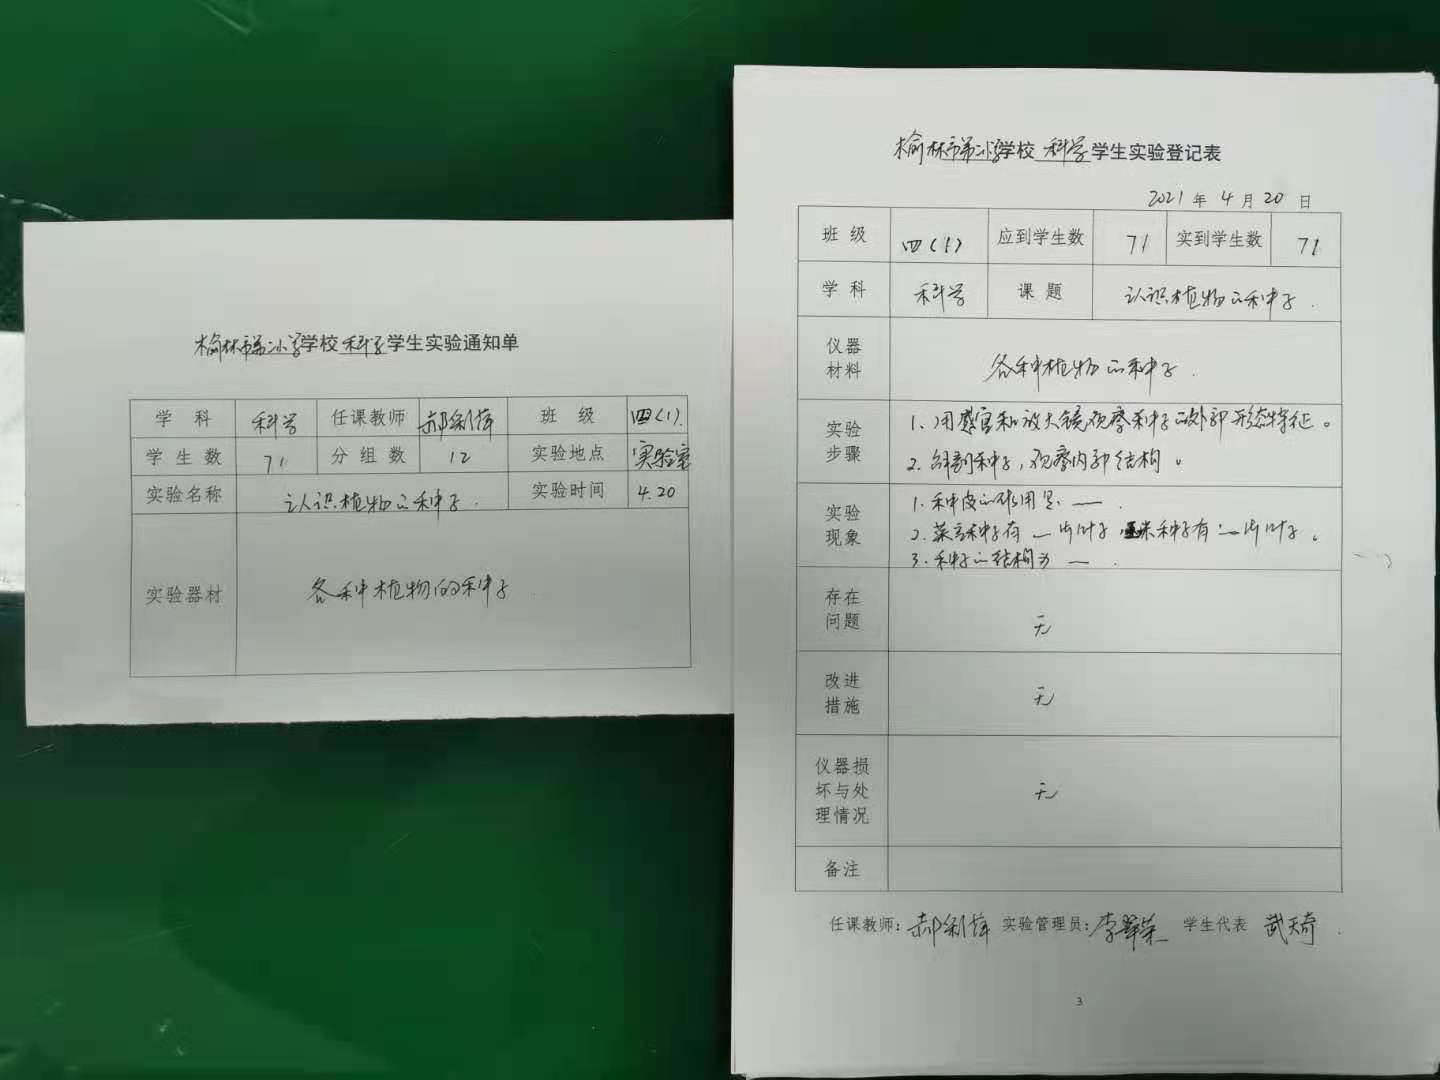 榆林市第二小学学校 科学 学生实验通知单
学 科 科学 任课教师 班 级 四(1)
学生数 71 分组数 12 实验地点 实验室
实验名称 认识植物的种子. 实验时间 4.20
实验器材 各种植物的种子
榆林市第小学学校 科学 学生实验登记表
2021 年 4 月 20 日
班 级 四(1) 应到学生数 71 实到学生数 71
学 科 科学 课 题 认识植物的种子.
仪器
材料 各种植物的种子.
实验
步骤
1.用感官和放大镜观察种子的外部形态特征。
2.解剖种子,观察内部结构。
实验
现象
1.种皮的作用是 —.
2.菜豆种子有 — 片叶子, 米种子有 — 片叶子。
3.种子的结构为 —.
存在
问题 无
改进
措施 无
仪器损
坏与处
理情况 无
备注
任课教师: 实验管理员: 学生代表 武天奇
3